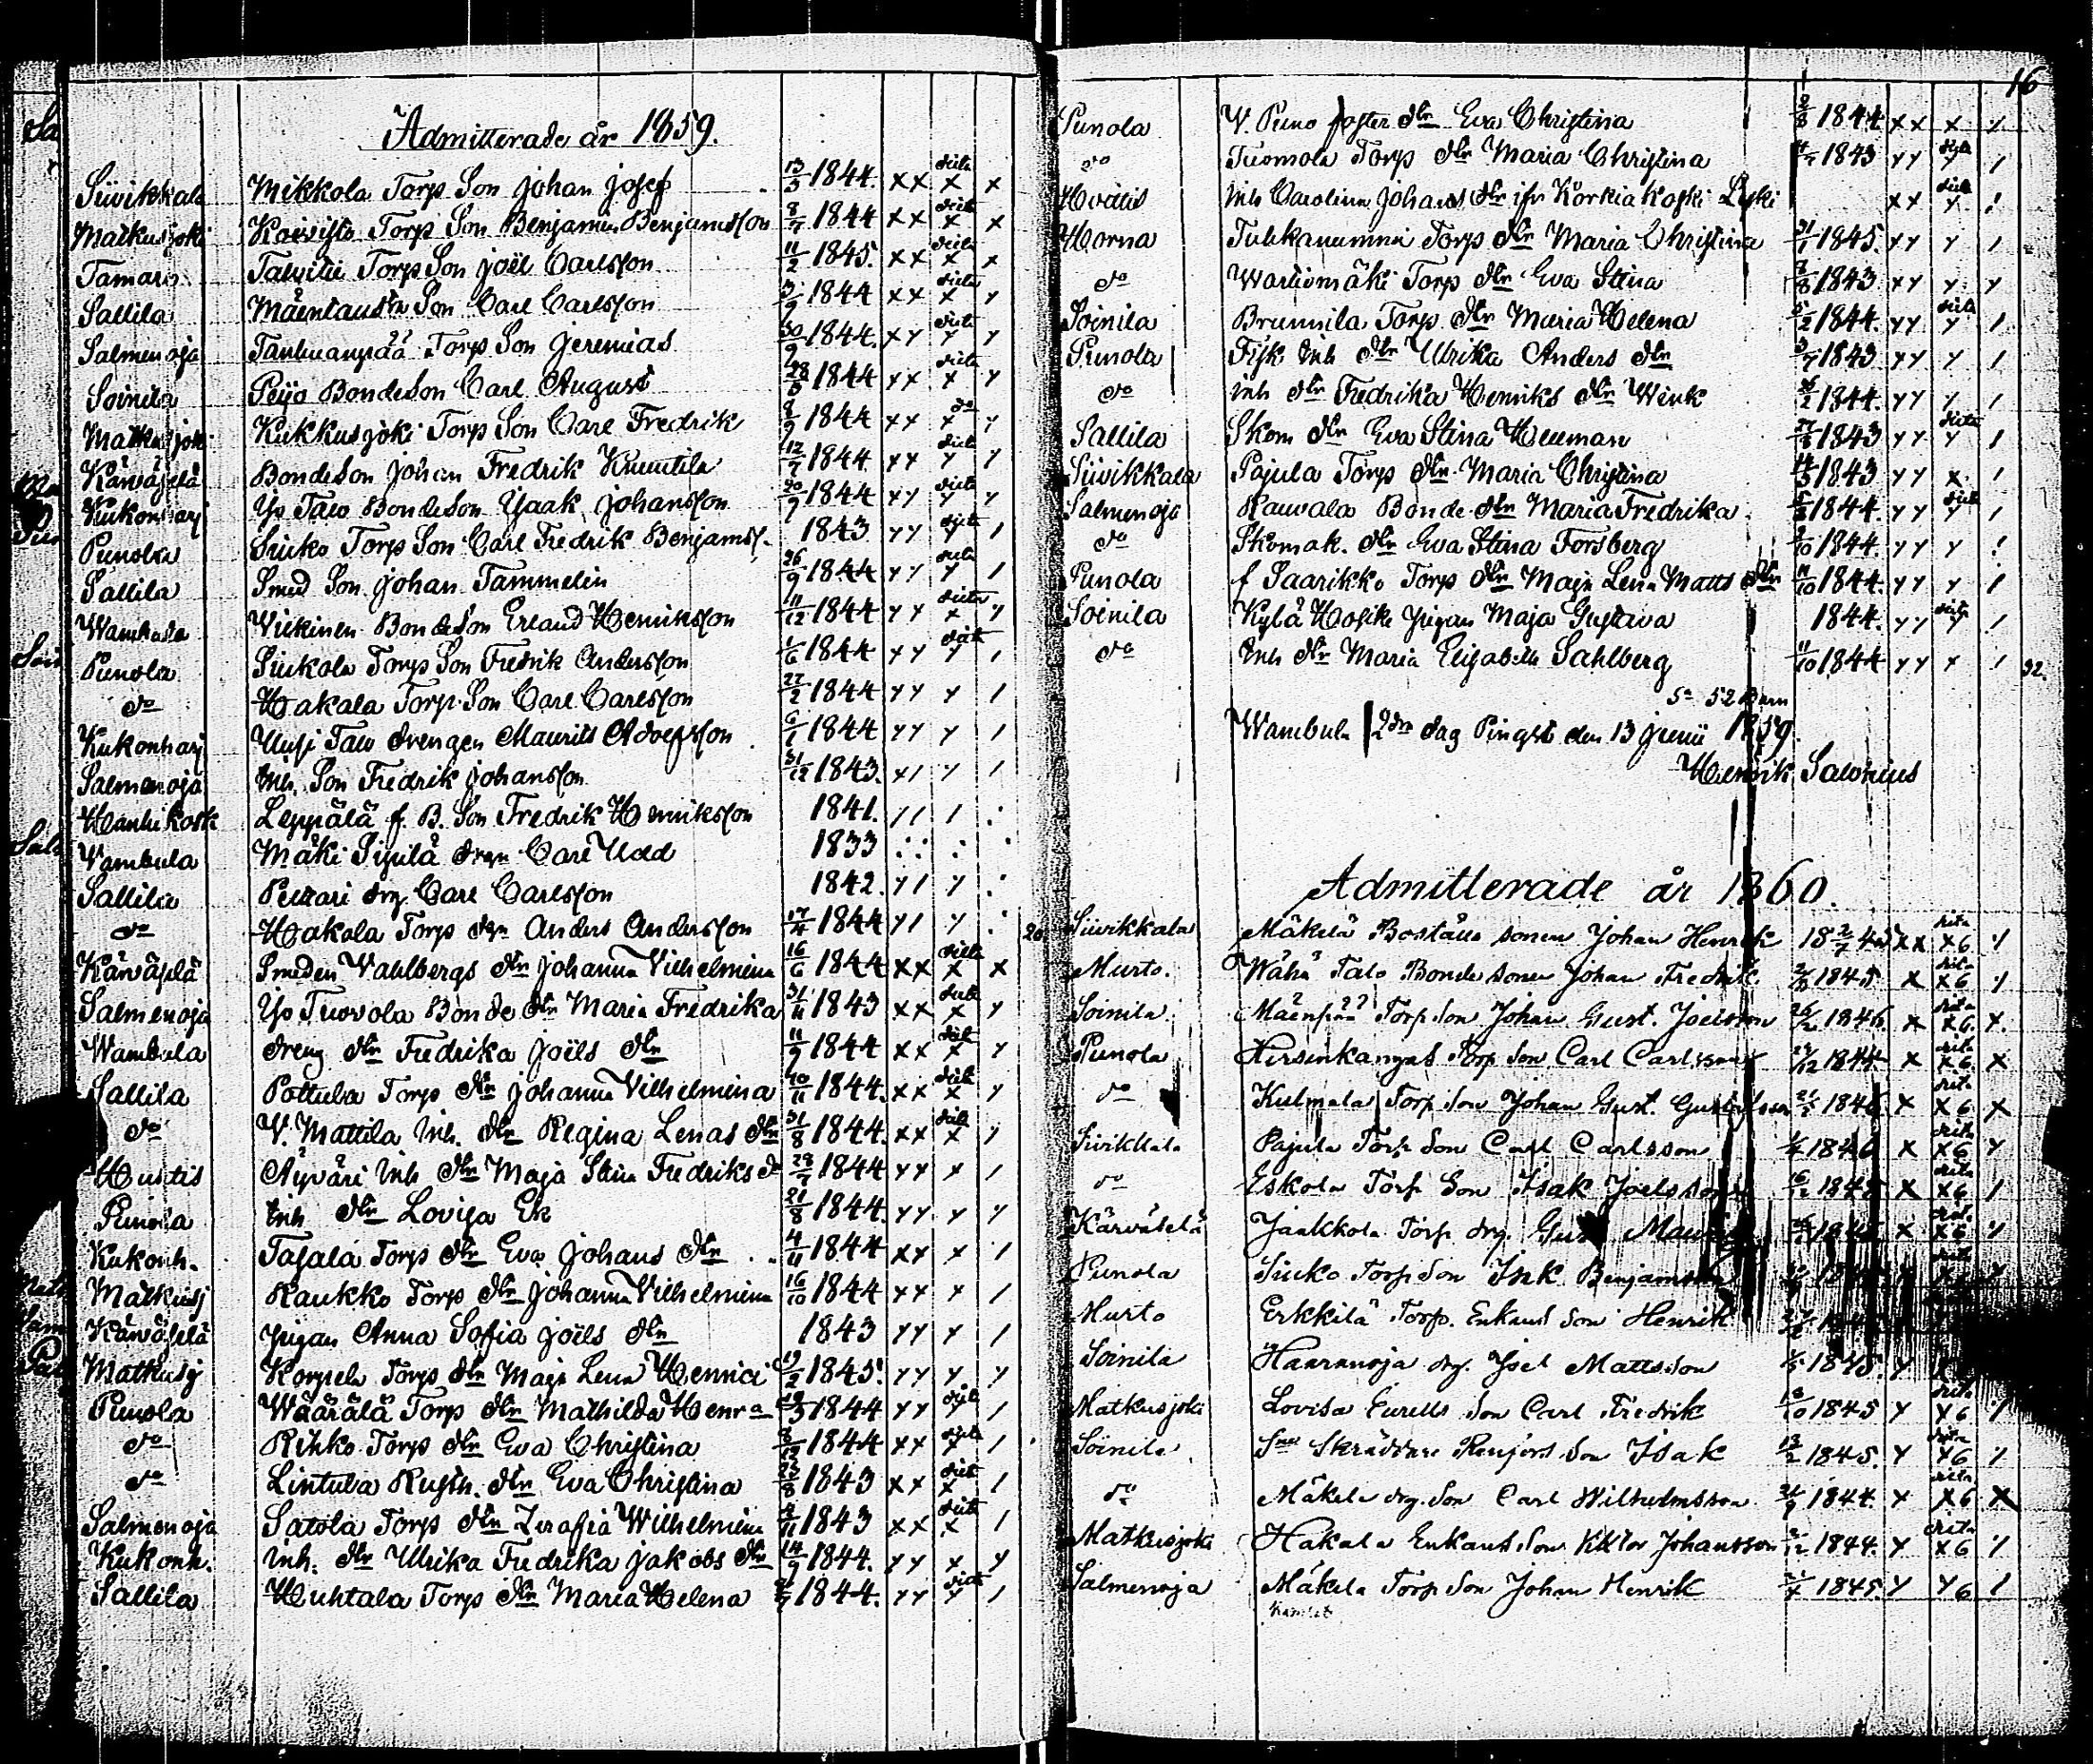 Admitterade år 1859.
Siivikkala Mikkola Torp. Son Johan Josef 13/3 1844. x x dito x x
Matkusjoki Koivisto Torp Son Benjamin Benjamsson 8/7 1844 x x dito x x
Tamaro Talvitie Torp Son Joël Carlsson 11/2 1845. x x dito x x
Sallila Mäentausta Son Carl Carlsson 3/9 1844 x x dito x x
Salmenoja Tanhuanpää Torp Son Jeremias 30/9 1844. x x dito
Soinila Peijo Bondeson Carl August 28/5 1844 x x dito
Matkusjoki Kukkusjoki Torp Son Carl Fredrik 8/9 1844 x x do
Kärväselä Bondeson Johan Fredrik 12/7 1844 x x dito
Kukonharj Yo Talo Bondeson Isaak Johansson 20/9 1844 x x dito
Punola Siuko Torp Son Carl Fredrik Benjamss. 1843 dito
Sallila Smed Son Johan Tammelin 26/9 1844 dito
Wambula Wirkinen Bondeson Erland Henriksson 11/12 1844 dito
Punola Siukola Torp Son Fredrik Andersson 1/6 1844 dito
do Hakala Torp Son Carl Carlsson 22/2 1844
Kukonharj Uusi Talo drengen Maurits Adolfsson 6/1 1844
Salmenoja Inh. Son Fredrik Johansson 31/12 1843.
Hanhikosk Leppälä f. B. Son Fredrik Henriksson 1841.
Vambula Mäki Sipilä drgn Carl Udd 1833
Sallila drg Carl Carlsson 1842.
do Hakola Torp dgn Anders Andersson 17/4 1844 20
Kärväselä Smeden Wahlbergs dtr Johanna Vilhelmina 16/6 1844 x x dito x x
Salmenoja Yo Tuovola Bonde dtr Maria Fredrika 31/11 1843 x x dito
Wambula dreng dtr Fredrika Joëls dtr 11/9 1844 x x dito
Sallila Torp dtr Johanna Vilhelmina 20/11 1844. x x dito
do W. Mattila Inh. dtr Regina Lenas dtr 31/8 1844. x x dito
Huitis Äyväri Inh dtr Maja Stina Fredriks d 28/7 1844
Punola Inh dtr Lovisa Ek 21/8 1844.
Kukonh. Tasala Torp dtr Eva Johans dtr 4/11 1844
Matkusj Raukko Torp dtr Johanna Vilhelmina 16/10 1844
Kärväselä Pigan Anna Sofia Joëls dtr 1843
Matkusj Korpela Torp dtr Maja Lena Henrici 19/2 1845.
Punola Wäärälä Torp dtr Mathilda Henr 1844 dito
do Rihko Torp dtr Eva Christina 1844 dito
do Lintula Rusth. dtr Eva Christina 22/8 1843 dito
Salmenoja Satola Torp dtr Serafia Wilhelmina 1843 dito
Kukonh. Inh. dtr Ulrika Fredrika Jakobs dtr 14/9 1844.
Sallila Huhtala Torp dtr Maria Helena 1844. dito
16
Punola W. Puno foster dtr Eva Christina 1844 x x x
do Tuomola Torp dtr Maria Christina 1843 dito
Hvittis Inh Carolina Johans dtr ifr Körkiakoski x x dito
Horna Tuhkanummi Torp dtr Maria Christina 31/1 1845.
do Wartiomäki Torp dtr Eva Stina 8/8 1843
Soinila Brunnila Torp dtr Maria Helena 1844. dito
Punola Fisk Inh dtr Ulrika Anders dtr 1843
do Inh dtr Fredrika Henriks dtr Wink 1844.
Sallila Skom dtr Eva Stina Heuman 1843 dito
Siivikkala Pajula Torp dtr Maria Christina 1843
Salmenoja Rauvala Bonde dtr Maria Fredrika 1844 dito
do Skomak. dtr Eva Stina Forsberg 1844.
Punola f Saarikko Torp dtr Maja Lena Matts dtr 11/10 1844.
Soinila Kylä Hosike Pigan Maja Gustava 1844. dito
do Inh dtr Maria Elisabeth Sahlberg 11/10 1844 32.
Sa 52 Barn
Wambula 2dra dag Pingst den 13 Junii 1859.
Henrik Salonius
Admitterade år 1860.
Siivikkala Mäkelä Boställs sonen Johan Henrik 18 2/7 45 x x dito x 6
Murto. Wähä Talo Bonde sonen Johan Fredrik. 1845 x dito x 6
Soinila Mäenpää Torp. son Johan Gust. Joelsson 26/2 1846 x dito x 6. x.
Punola Hirsinkangas Torp son Carl Carlsson 1844 x dito x 6 x
do Kulmala Torp son Johan Gust. Gustafsson 1846 x dito x 6 x
Siivikkala Pajula Torp Son Carl Carlsson 1846 x dito x 6
do Eskola Torp Son Isak Joelsson 16/12 1845 x dito x 6
Kärväselä Jaakkola Torp drg. Gust 1845 x dito x 6
Punola Siuko Torp Son Isak Benjamsson
Murto Erkkilä Torp. Enkans Son Henrik
Soinila Haaranoja drg. Joel Mattsson 1845.
Matkusjoki Lovisa Eurells son Carl Fredrik 1845 dito x 6
Soinila Skräddare Renfors son Isak 1845. dito x 6
do Mäkela drg. Son Carl Wilhelmsson 1844 dito x 6 x
Matkusjoki Hakala Enkans Son Viktor Johansson 1844. dito x 6
Salmenoja Mäkela Torp Son Johan Henrik 1845 x 6